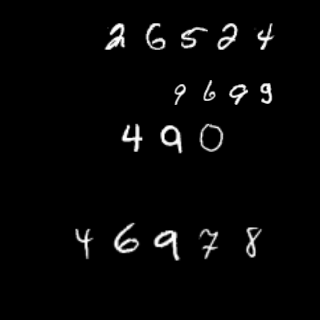 26524
9699
490
46978